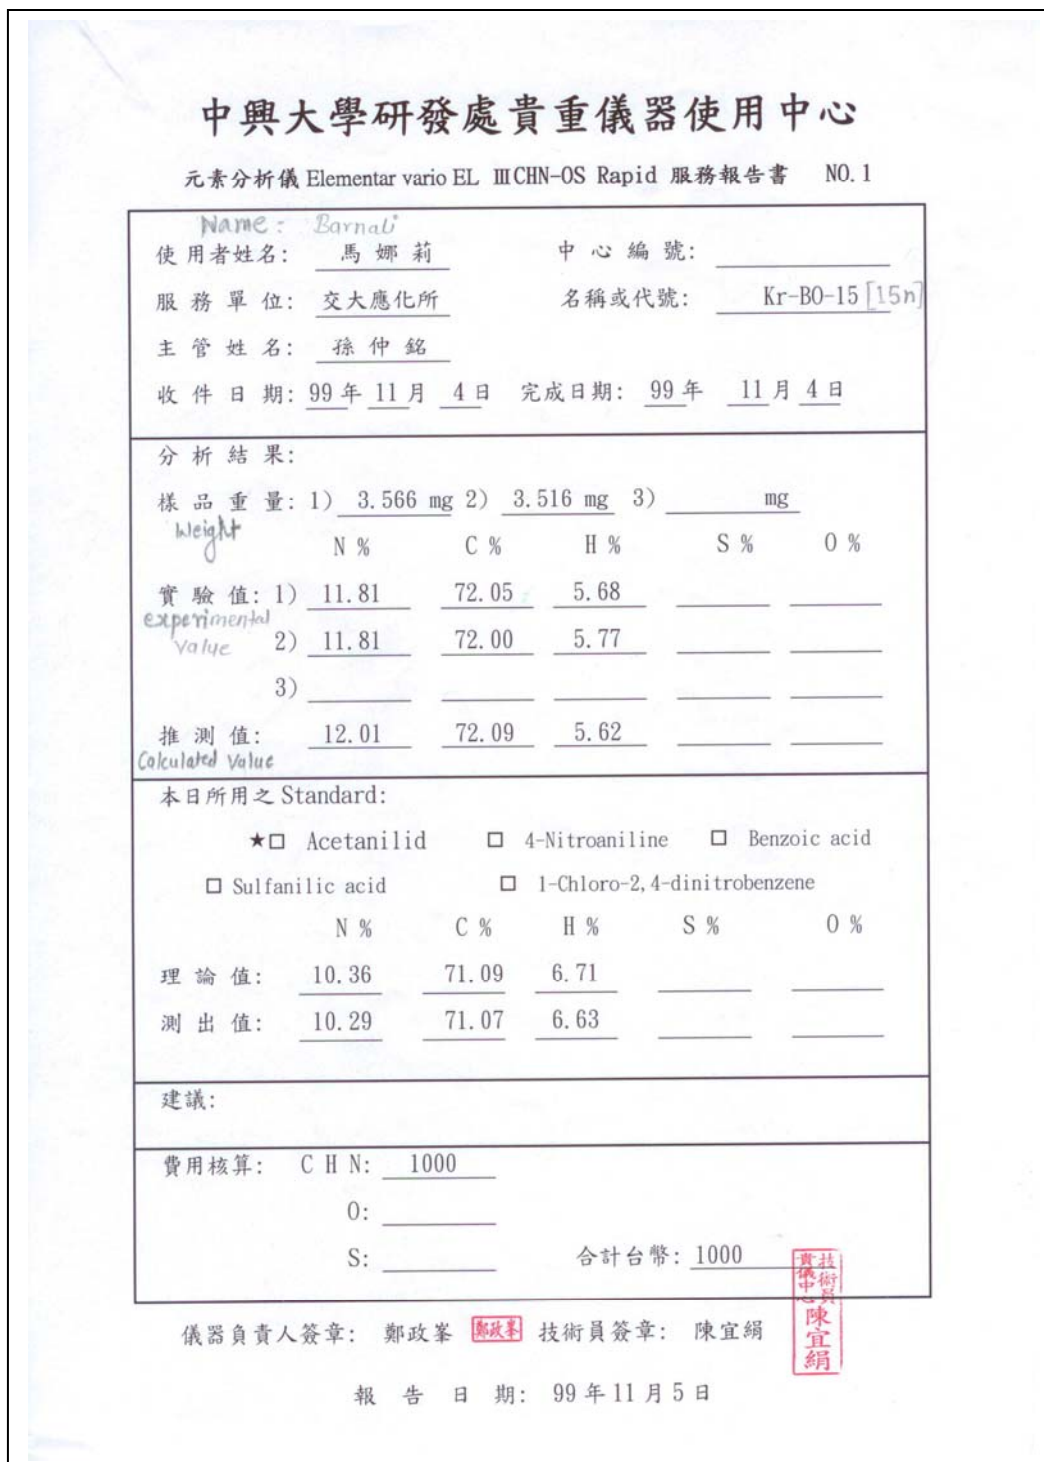 中興大學研發處貴重儀器使用中心
元素分析儀 Elementar vario EL ⅢCHN-OS Rapid 服務報告書 NO. 1
Name : Barnali
使用者姓名: 馬娜莉 中心編號:
服務單位: 交大應化所 名稱或代號: Kr-BO-15 [15n]
主管姓名: 孫仲銘
收件日期: 99 年 11 月 4 日 完成日期: 99 年 11 月 4 日
分析結果:
樣品重量: 1) 3.566 mg 2) 3.516 mg 3) mg
Weight
N % C % H % S % O %
實驗值: 1) 11.81 72.05 5.68
experimental
value 2) 11.81 72.00 5.77
3)
推測值: 12.01 72.09 5.62
Calculated Value
本日所用之 Standard:
★□ Acetanilid □ 4-Nitroaniline □ Benzoic acid
□ Sulfanilic acid □ 1-Chloro-2,4-dinitrobenzene
N % C % H % S % O %
理論值: 10.36 71.09 6.71
測出值: 10.29 71.07 6.63
建議:
費用核算: C H N: 1000
O:
S: 合計台幣: 1000
技術員
貴儀中心
陳宜絹
儀器負責人簽章: 鄭政峯 鄭政峯 技術員簽章: 陳宜絹
報告日期: 99 年 11 月 5 日